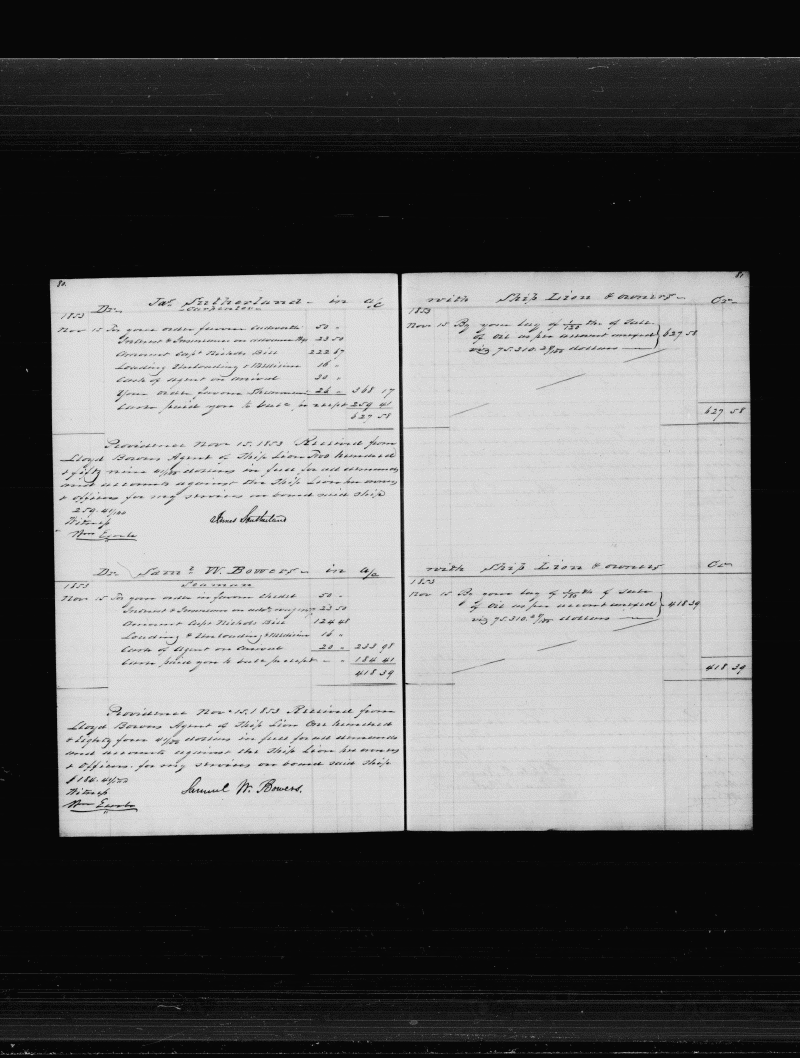 80.
Dr Jas Sutherland in a/c
Carpenter
1853
Nov 15 To your order favour 50 "
Interest & Insurance on advance 23 50
Amount Capt Nichols Bill 222 67
Loading Unloading & Medicine 16 "
Cash of Agent on arrival 30 "
Your order favour 26 " 368 17
Cash paid you to bal pr receipt 259 41
627 58
Providence Nov 15. 1853 Received from
Lloyd Bowers Agent of Ship Lion Two hundred
& fifty nine 41/100 dollars in full for all demands
and accounts against the Ship Lion her owners
& officers for my services on board said Ship
259.41/100
Witness
James Sutherland
Dr Saml W. Bowers in a/c
Seaman
1853
Nov 15 To your order in favour 50 "
Interest & Insurance on 23 50
Amount Capt Nichols Bill 124 48
Loading & Unloading & Medicine 16 "
Cash of Agent on Arrival 20 " 233 98
Cash paid you to bal pr receipt 184 41
418 39
Providence Nov 15. 1853 Received from
Lloyd Bowers Agent of Ship Lion One hundred
& Eighty four 41/100 dollars in full for all demands
and accounts against the Ship Lion her owners
& Officers for my services on board said Ship
$184.41/100
Witness
Samuel W. Bowers.
81
with Ship Lion & owners Cr
1853
Nov 15 By your lay of ths of Sale
of Oil as per account annexed 627 58
viz 75.310.29/100 dollars
627 58
with Ship Lion & owners Cr
1853
Nov 15 By your lay of th of Sale
of Oil as per account annexed 418 39
viz 75.310.29/100 dollars
418 39